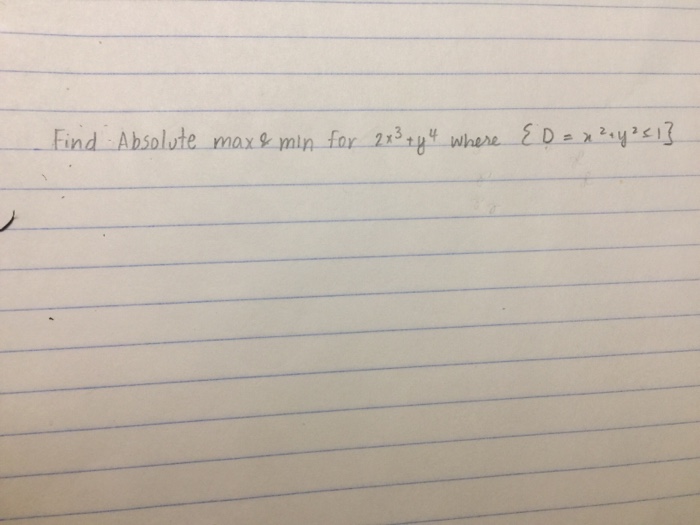 Find Absolute max & min for 2x³+y⁴ where {D = x²+y²≤1}